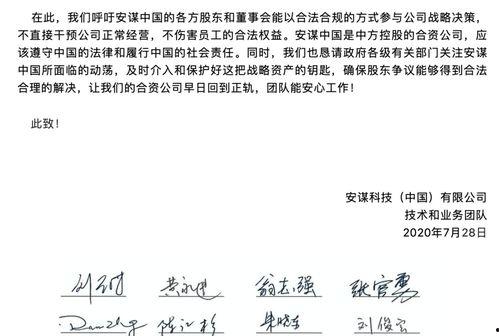 在此，我们呼吁安谋中国的各方股东和董事会能以合法合规的方式参与公司战略决策，
不直接干预公司正常经营，不伤害员工的合法权益。安谋中国是中方控股的合资公司，应
该遵守中国的法律和履行中国的社会责任。同时，我们也恳请政府各级有关部门关注安谋
中国所面临的动荡，及时介入和保护好这把战略资产的钥匙，确保股东争议能够得到合法
合理的解决，让我们的合资公司早日回到正轨，团队能安心工作！
此致！
安谋科技（中国）有限公司
技术和业务团队
2020年7月28日
翁志强 张官勇
刘俊宏